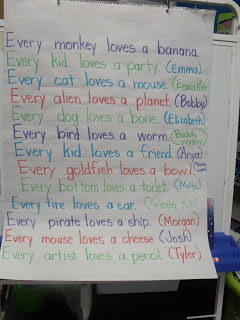 Every monkey loves a banana.
Every kid loves a party. (Emma)
Every cat loves a mouse. (Emma Kate)
Every alien loves a planet. (Bobby)
Every dog loves a bone. (Elizabeth)
Every bird loves a worm. (Buddy
Every kid loves a friend. (Anya)
Every goldfish loves a bowl.
Every bottom loves a toilet. (Molly)
Every tire loves a car. (Glenn
Every pirate loves a ship. (Morgan)
Every mouse loves a cheese (Josh)
Every artist loves a pencil. (Tyler)